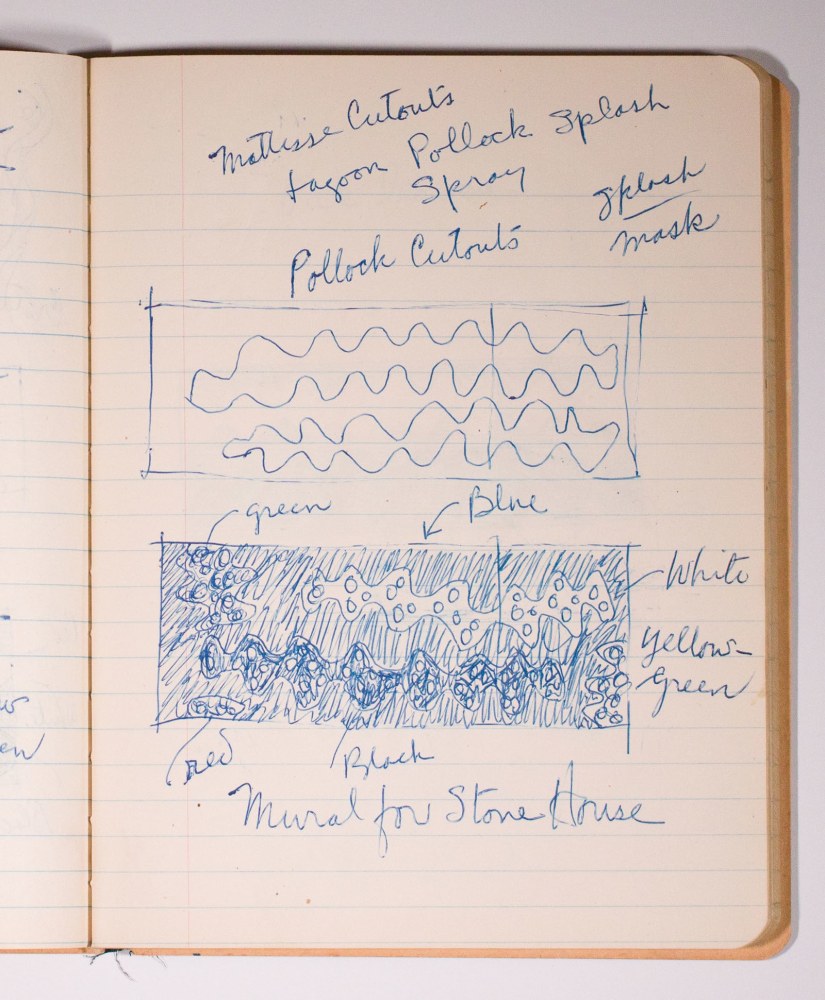 Mattisse Cutouts
Lagoon Pollock Splash
Spray
Splash
Mask
Pollock Cutouts
green
Blue
White
Yellow-
Green
Red
Black
Mural for Stone House